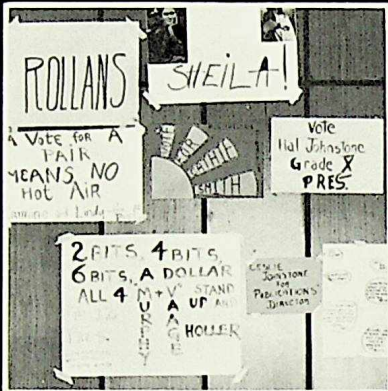 ROLLANS
SHEIL-A!
A Vote for A
PAIR
MEANS NO
Hot AIR
VOTE
FOR
CATHIE
SMITH
Vote
Hal Johnstone
Grade X
PRES.
2 BITS, 4 BITS,
6 BITS, A DOLLAR
ALL 4 M + V STAND
UP AND
HOLLER
MURPHY
LESLIE
JOHNSTONE
FOR
PUBLICATIONS
DIRECTOR